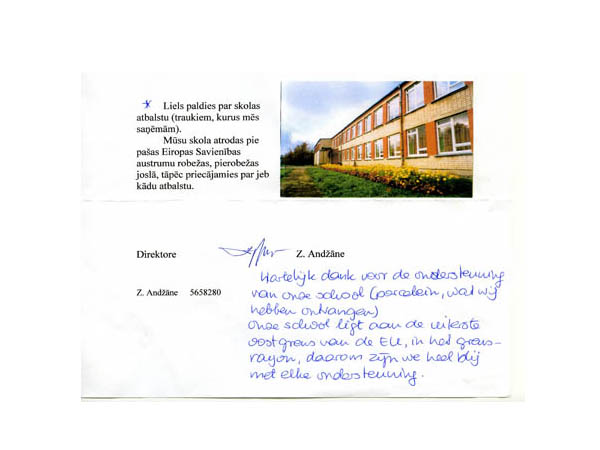 Liels paldies par skolas
atbalstu (traukiem, kurus mēs
saņēmām).
Mūsu skola atrodas pie
pašas Eiropas Savienības
austrumu robežas, pierobežas
joslā, tāpēc priecājamies par jeb
kādu atbalstu.
Direktore Z. Andžāne
Z. Andžāne 5658280
Hartelijk dank voor de ondersteuning
van onze school (porcelein, wat wij
hebben ontvangen)
Onze school ligt aan de uiterste
oostgrens van de EU, in het grens-
rayon, daarom zijn we heel blij
met elke ondersteuning.